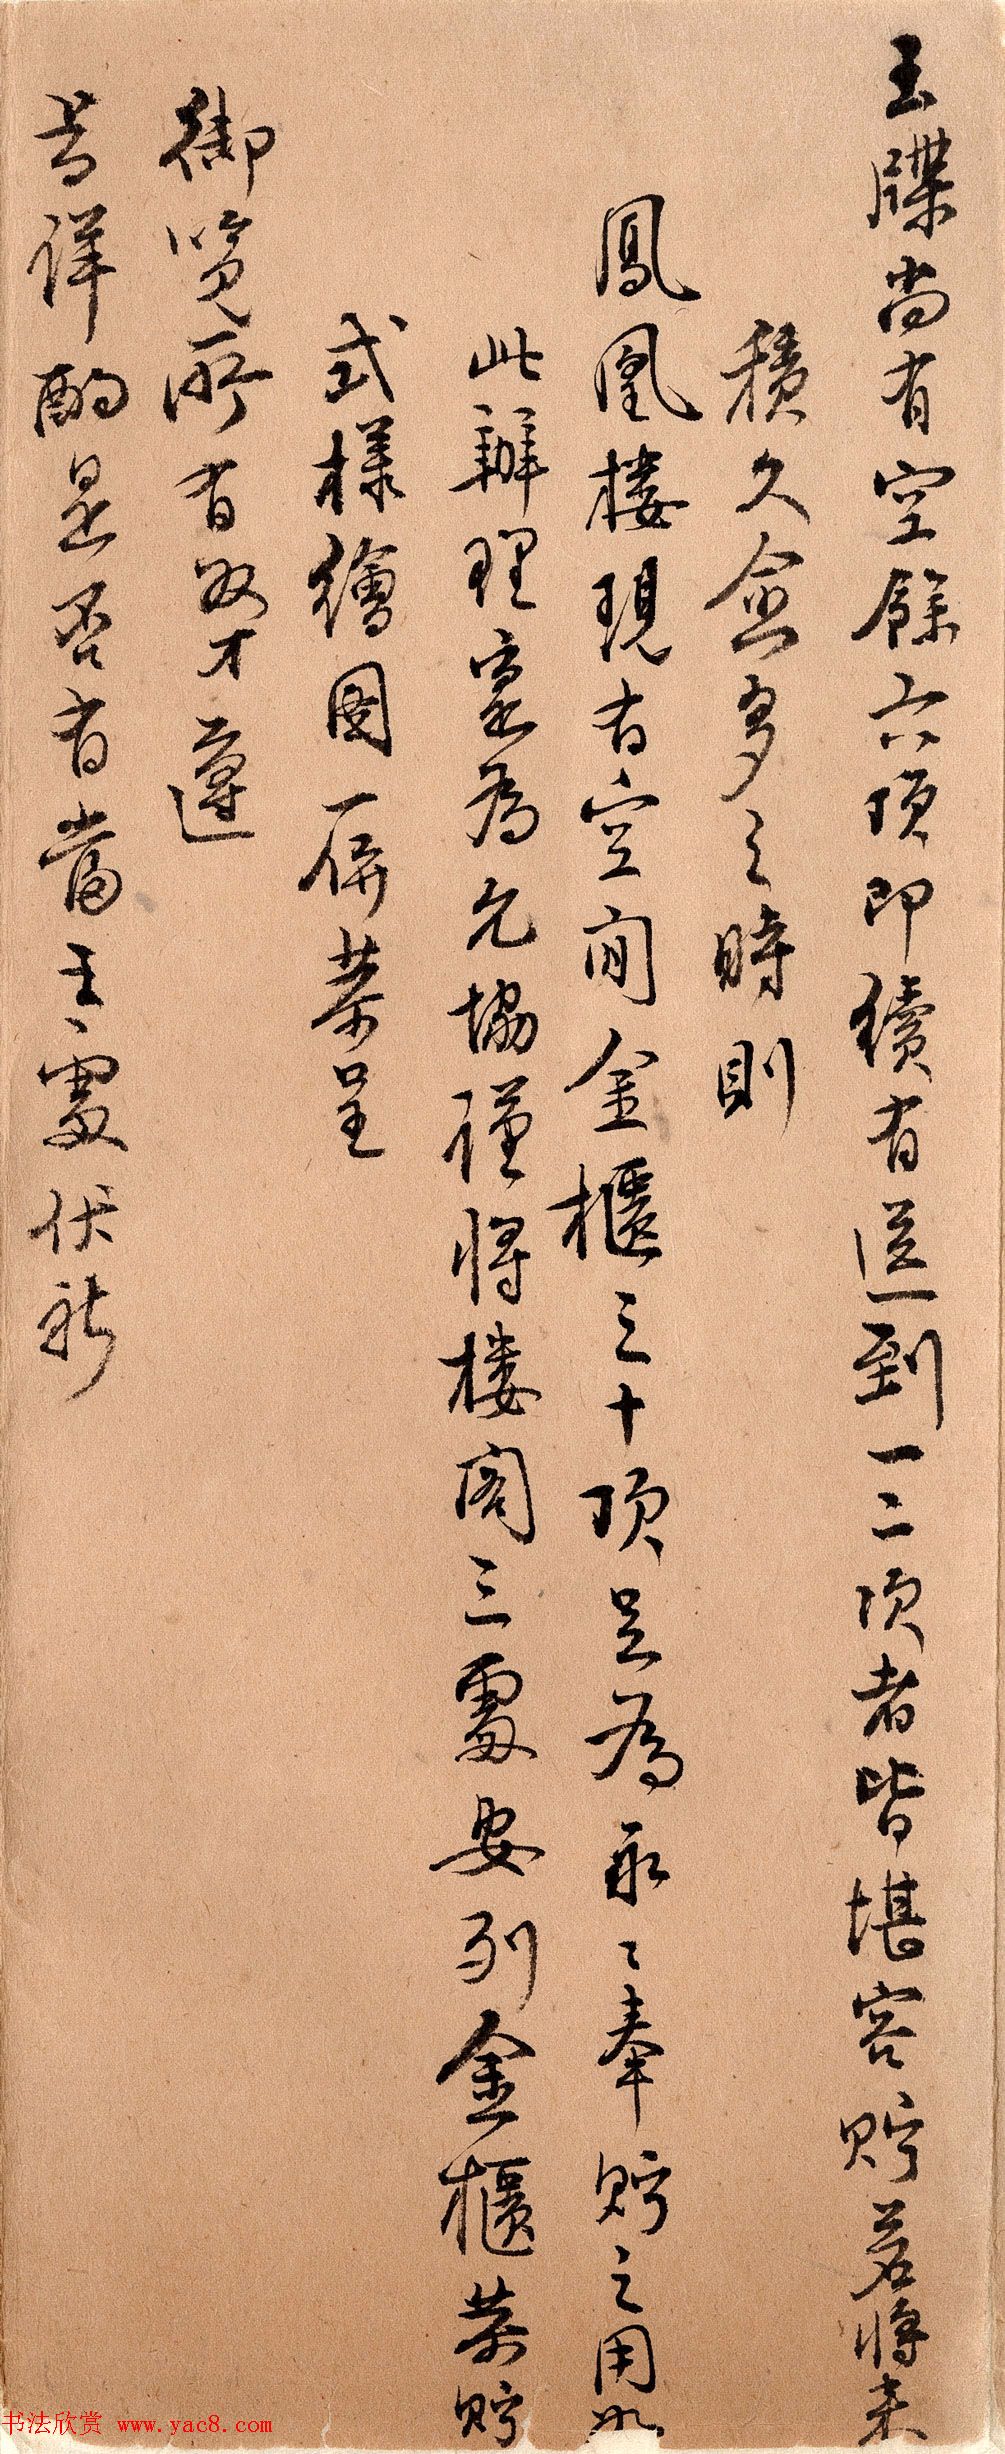 玉牒尚有空餘六頂即續有送到一二次者皆堪容貯若將來
積久愈多之時則
鳳凰樓現有空閒金櫃三十頂足為永〻奉貯之用如
此辦理寔為允協謹將樓閣三處安列金櫃恭貯
式樣繪圖一併恭呈
御覽所有奴才遵
旨詳酌是否有當之處伏祈
书法欣赏 www.yac8.com